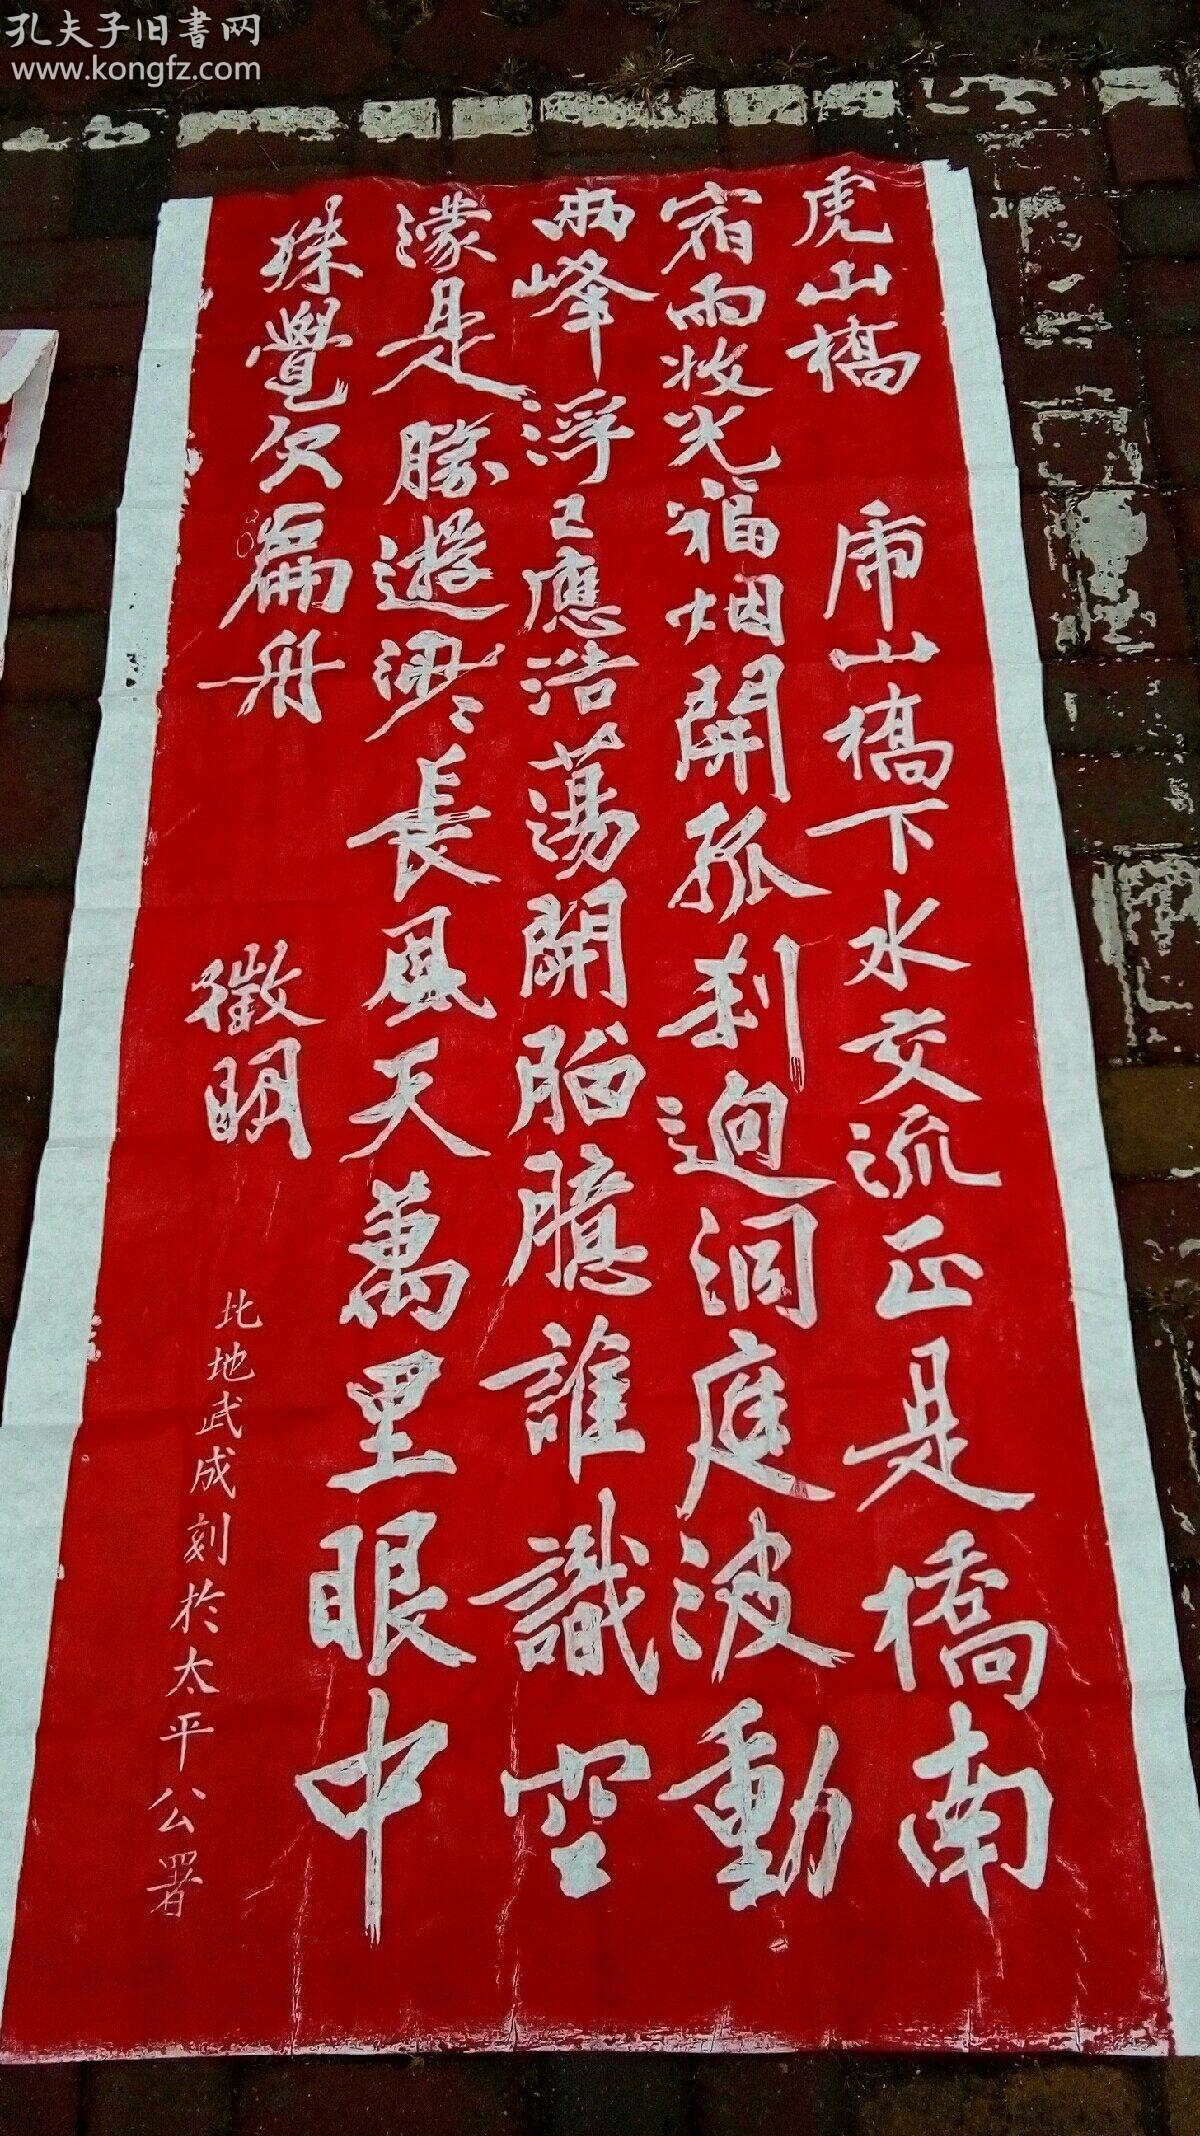 孔夫子旧書网
www.kongfz.com
虎山橋 虎山橋下水交流正是橋南
宿雨收光福烟開孤刹迥洞庭波動
兩峰浮已應浩蕩開胸臆誰識空
濛是勝遊寥〻長風天萬里眼中
殊覺欠扁舟 徵明
北地武成刻於太平公署